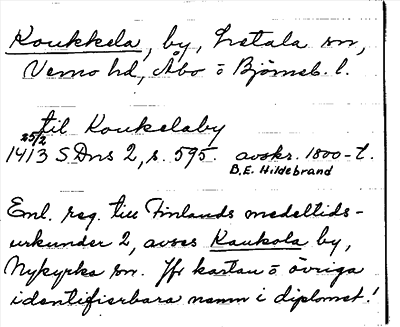 Koukkela, by, Letala sn,
Vemo hd, Åbo o Björneb. l.
til Koukelaby
25/2
1413 SDns 2, s. 595. avskr. 1800-t.
B.E. Hildebrand
Enl. reg. till Finlands medeltids-
urkunder 2, avses Kaukola by,
Nykyrka sn. Jfr kartan o övriga
identifierbara namn i diplomet!